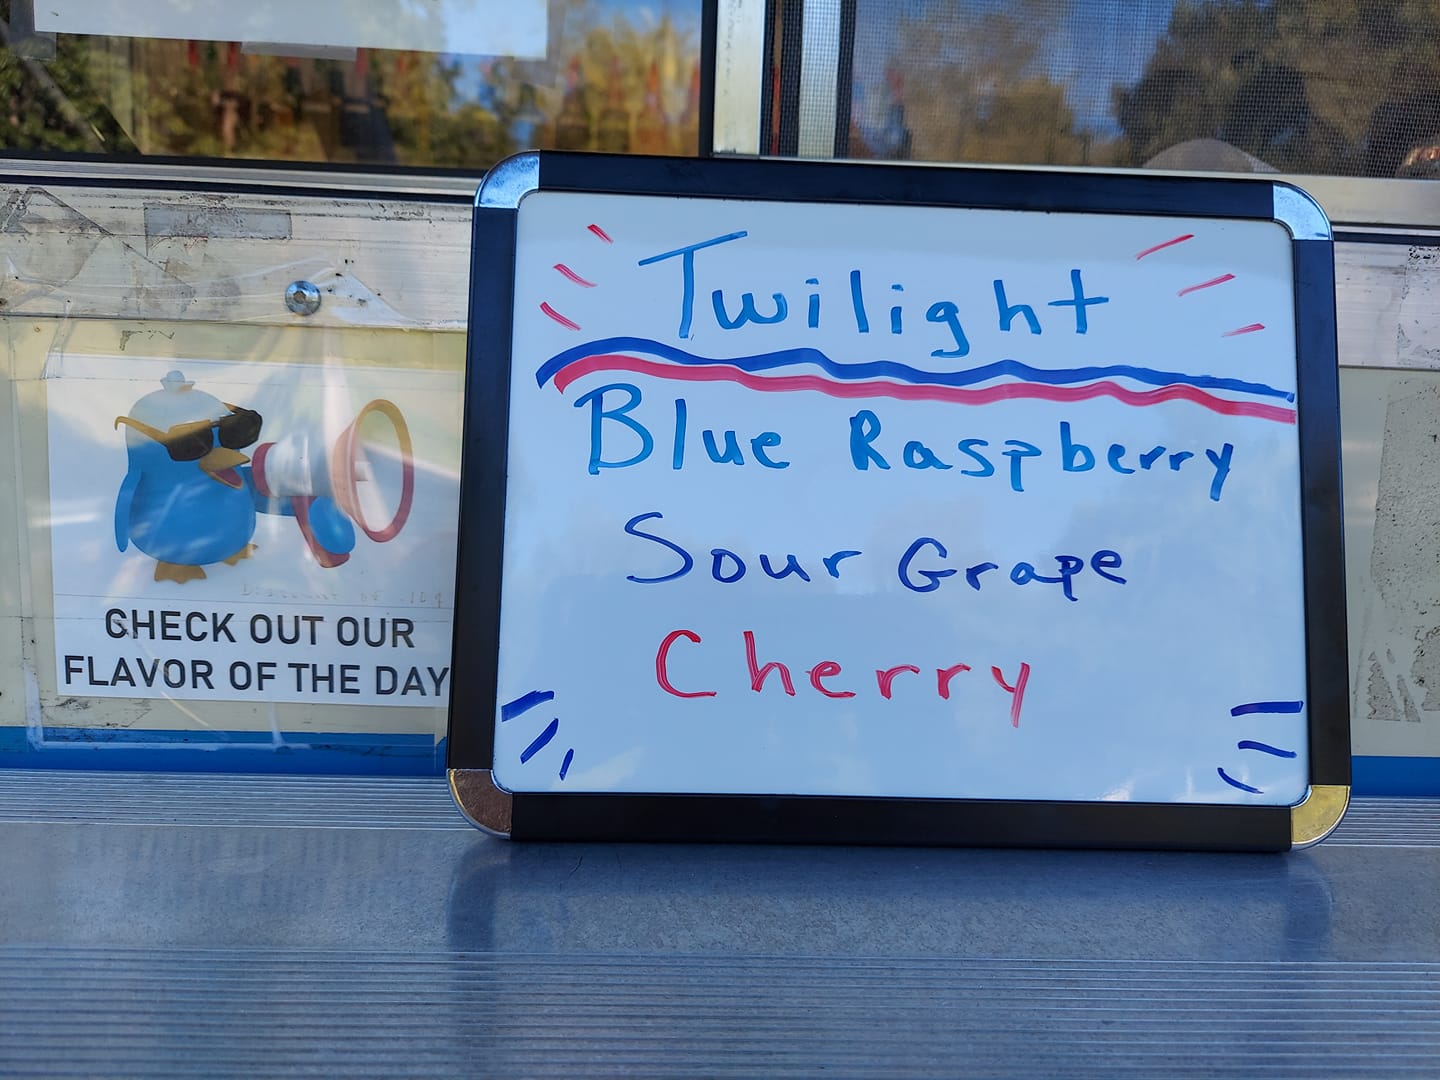 CHECK OUT OUR
FLAVOR OF THE DAY
Twilight
Blue Raspberry
Sour Grape
Cherry